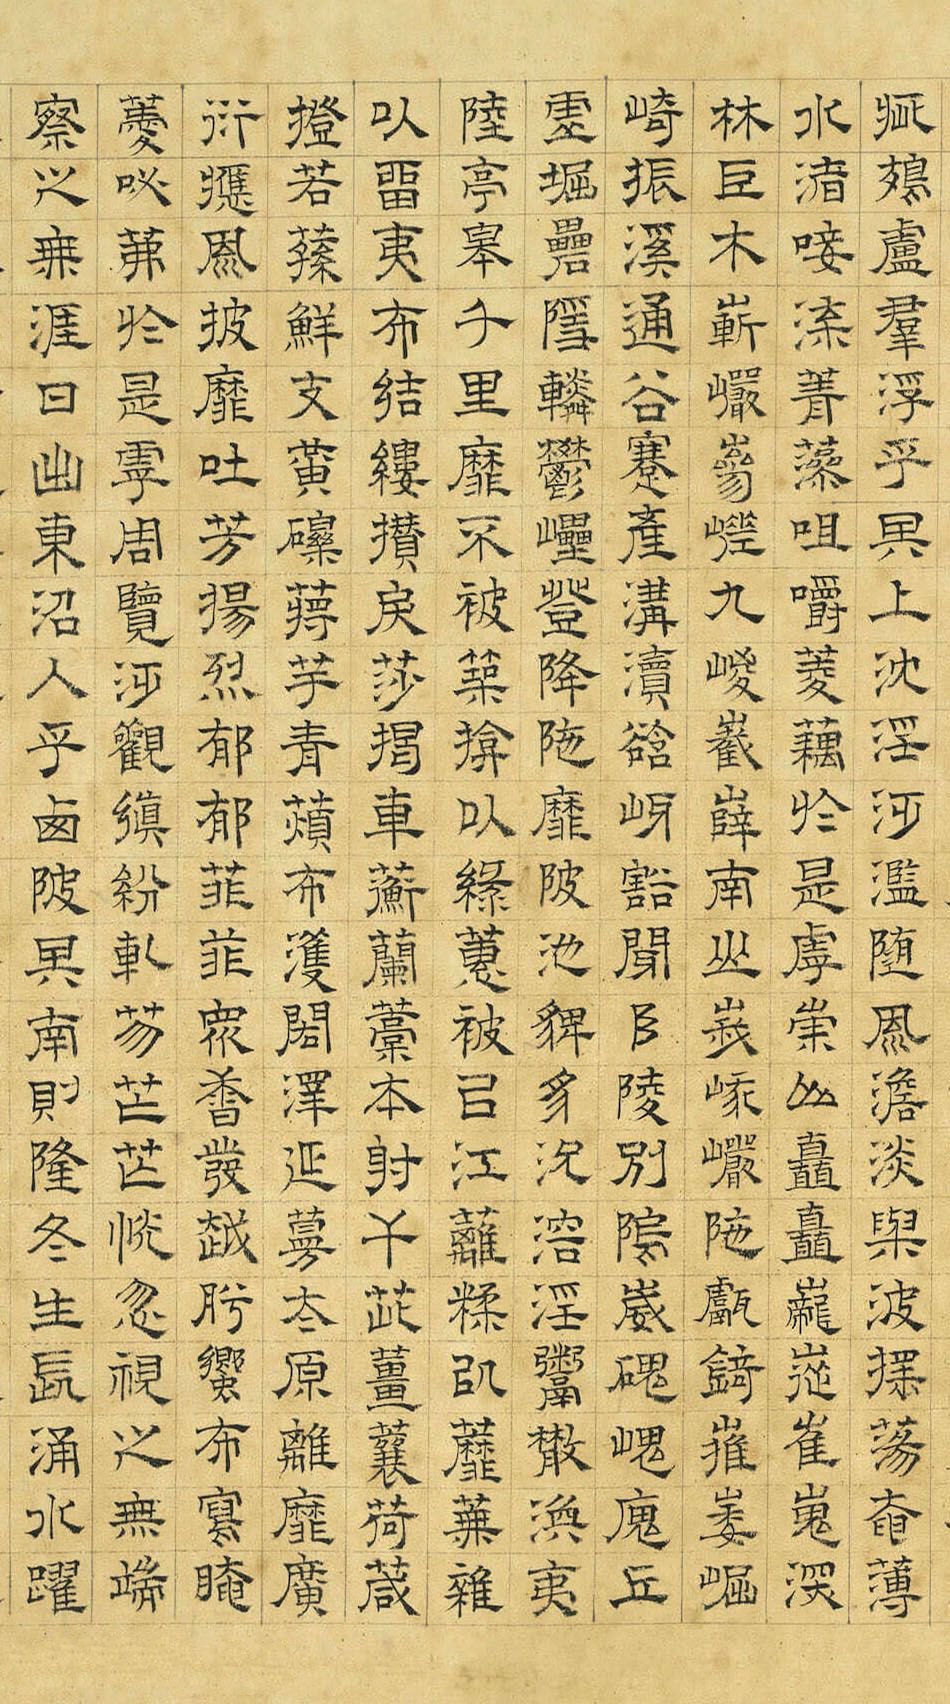 疵鵁盧羣浮乎其上沈淫汎濫随風澹淡與波搖蕩奄薄
水渚唼喋菁藻咀嚼菱藕於是虖崇山矗矗巃嵷崔嵬深
林巨木嶄巖嵾嵯九嵕嶻嶭南山峩峨巖陁甗錡摧崣崛
崎振溪通谷蹇產溝瀆谽岈豁閜阜陵別隝崴磈嵬廆丘
虛堀礨隱轔鬱㠥登降陁靡陂池貏豸沇溶淫鬻散渙夷
陸亭皋千里靡不被築揜以綠蕙被以江蘺糅以蘪蕪雜
以留夷布結縷攢戾莎揭車蘅蘭槀本射干茈薑蘘荷葴
橙若蓀鮮支黃礫蔣芧青薠布濩閎澤延蔓太原離靡廣
衍應風披靡吐芳揚烈郁郁菲菲衆香發越肸蠁布寫晻
薆咇茀於是虖周覽泛觀縝紛軋芴芒芒恍忽視之無端
察之無涯日出東沼入乎西陂其南則隆冬生長涌水躍